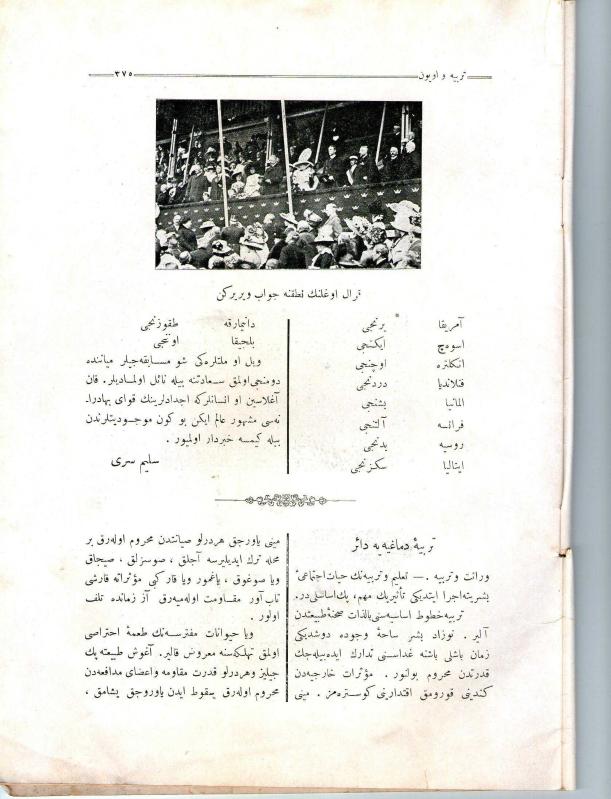 تربيه و اويون
٣٧٥
قرال اوغلنك نطقنه جواب ويريركن
آمريقا برنجى
اسوه‌چ ايكنجى
انكلتره اوچنجى
فنلانديا دردنجى
المانيا بشنجى
فرانسه آلتنجى
روسيه يدنجى
ايتاليا سكزنجى
دانيمارقه طقوزنجى
بلجيقا اوننجى
ويل او ملتلره‌كى شو مسابقه‌جيلر مياننده
دوه‌نجى اولمق سعادتنه بيله نائل اولمامادیلر. قان
آغلاسين او انسانلركه اجدادلرينك قواى بهادرا-
نه‌سى مشهور عالم ايكن بو كون موجوديتلرندن
بيله كيمسه خبردار اولميور .
سليم سرى
تربيهٔ دماغيه يه دائر
وراثت و تربيه . — تعليم و تربيه‌نك حيات اجتماعيهٔ
بشريته اجرا ايتديكى تأثيرك مهم، پك اساسلى‌در.
تربيه خطوط اساسيه‌سنى بالذات صحنهٔ طبيعتدن
آلير . نوزاد بشر ساحهٔ وجوده دوشديكى
زمان باشلى باشنه غداسنى تدارك ايده‌بيله‌جك
قدرتدن محروم بولنور . مؤثرات خارجيه‌دن
كندينى قورومق اقتدارينى كوستره‌مز . مينى
مينى ياوروجق هردرلو صيانتدن محروم اوله‌رق بر
محله ترك ايديليرسه آجلق ، صوسزلق ، صيجاق
ويا صوغوق ، ياغمور ويا قار كبى مؤثراته قارشى
تاب آور مقاومت اوله‌ميه‌رق آز زمانده تلف
اولور .
ويا حيوانات مفترسه‌نك طعمهٔ احتراصى
اولمق تهلكه‌سنه معروض قالير. آغوش طبيعته پك
جيليز و هردرلو قدرت مقاومه واعضاى مدافعه‌دن
محروم اوله‌رق سقوط ايدن ياوروجق يشامق ،